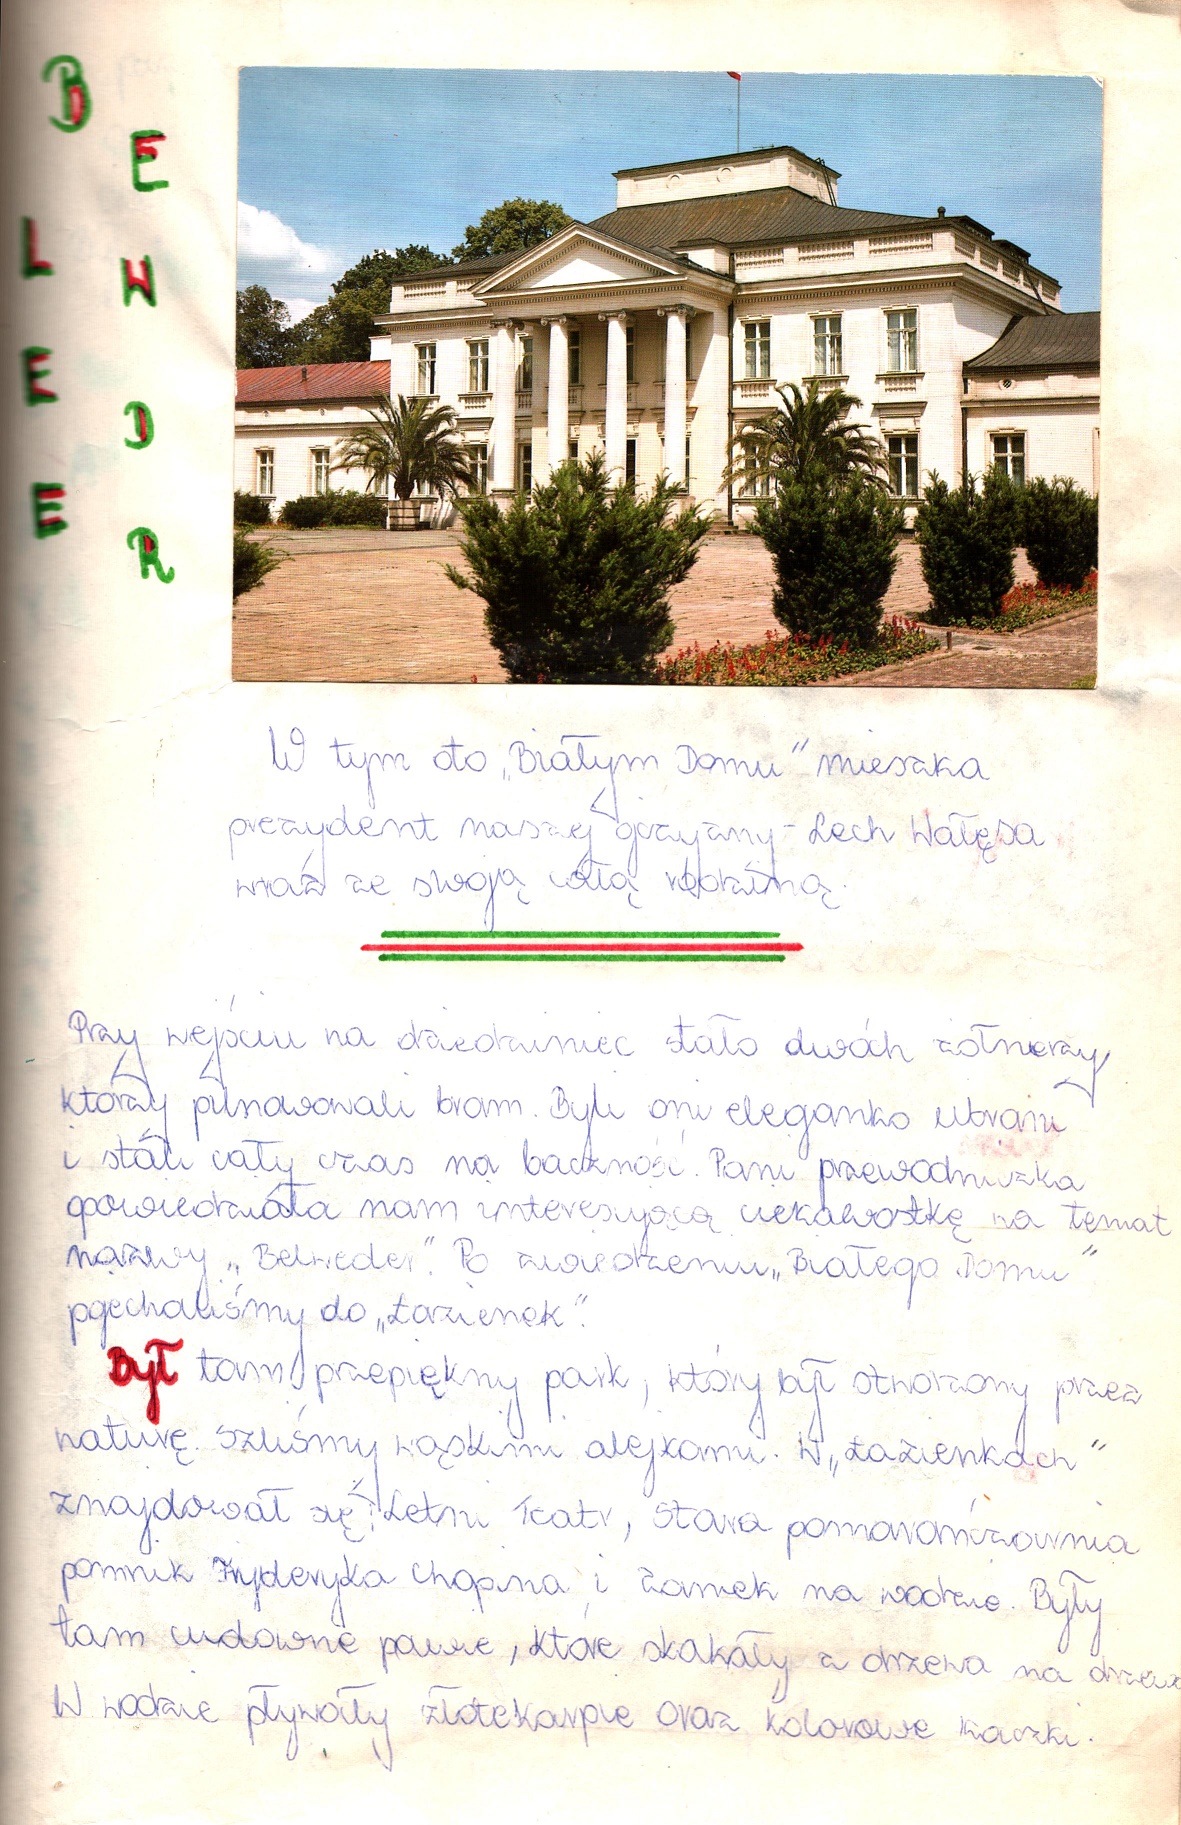 BELWEDER
W tym oto „Białym Domu" mieszka
prezydent naszej ojczyzny - Lech Wałęsa
wraz ze swoją całą rodziną.
Przy wejściu na dziedziniec stało dwóch żołnierzy
którzy pilnowali bram. Byli oni eleganko ubrani
i stali cały czas na baczność. Pani przewodniczka
opowiedziała nam interesującą ciekawostkę na temat
nazwy „Belweder". Po zwiedzeniu „Białego Domu"
pojechaliśmy do „Łazienek".
Był tam przepiękny park, który był stworzony przez
naturę. Szliśmy wąskimi alejkami. W „Łazienkach"
znajdował się: Letni Teatr, Stara pomarańczownia
pomnik Fryderyka Chopina i zamek na wodzie. Były
tam cudowne pawie, które skakały z drzewa na drzewo
W wodzie pływały złote karpie oraz kolorowe kaczki.